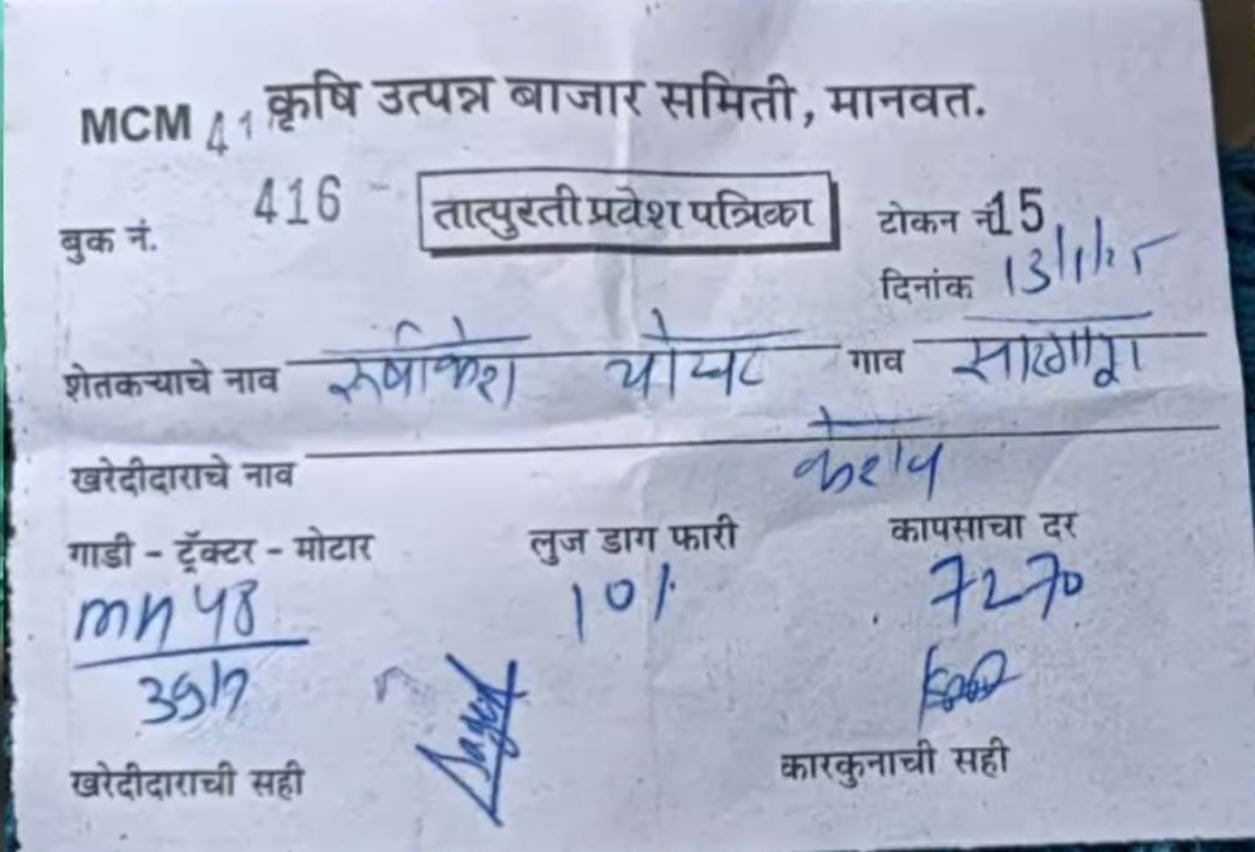 MCM 41 कृषि उत्पन्न बाजार समिती, मानवत.
बुक नं. 416 तात्पुरती प्रवेश पत्रिका टोकन नं 15
दिनांक 13/1/25
शेतकऱ्याचे नाव रुषीकेश गाव
खरेदीदाराचे नाव केशव
गाडी - ट्रॅक्टर - मोटार लुज डाग फारी कापसाचा दर
101. 7270
खरेदीदाराची सही कारकुनाची सही